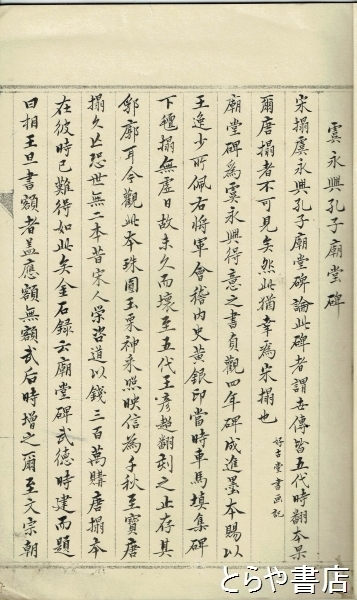 虞永興孔子廟堂碑
宋搨虞永興孔子廟堂碑論此碑者謂世傳皆五代時翻本果
爾唐搨者不可見矣然此猶幸為宋搨也
好古堂書画記
廟堂碑為虞永興得意之書貞觀四年碑成進墨本賜以
王逸少所佩右將軍會稽內史黃銀印當時車馬填集碑
下氊搨無虛日故未久而壞至五代王彥超翻刻之止存其
郛廓耳今觀此本珠圓玉栗神采照映信為千秋至寶唐
搨久亡恐世無二本昔宋人學咨道以錢三百萬購唐搨本
在彼時已難得如此矣金石録云廟堂碑武德時建而題
曰相王旦書額者蓋應額無額武后時增之爾至文宗朝
とらや書店